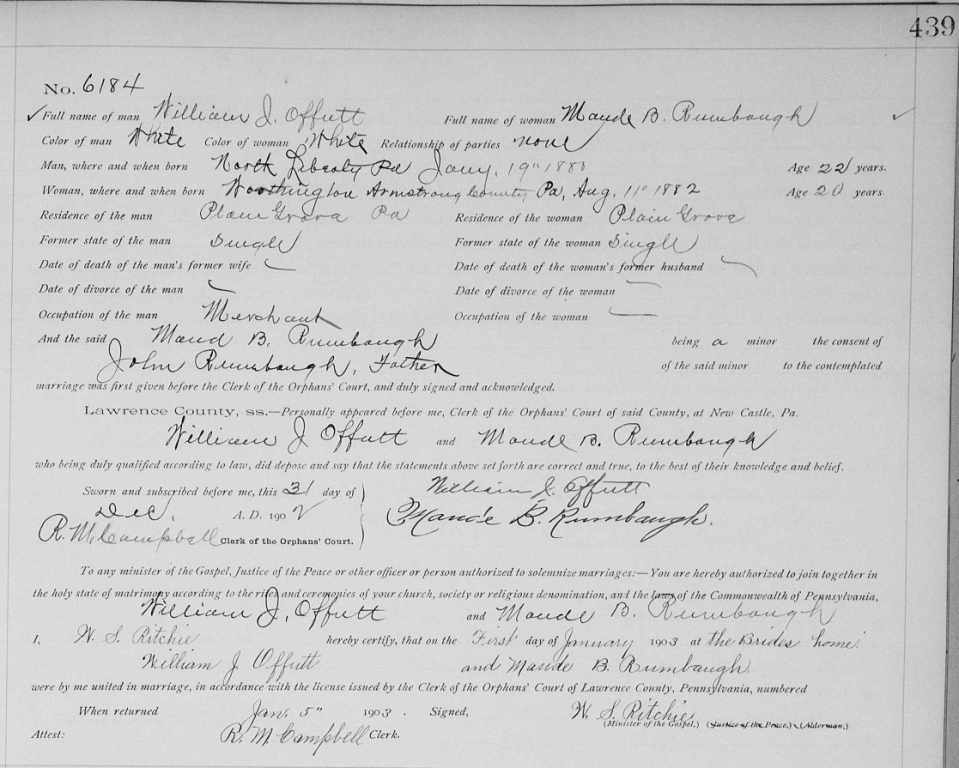 439
No. 6184
✓ Full name of man William J. Offutt Full name of woman Maude B. Rumbaugh ✓
Color of man White Color of woman White Relationship of parties none
Man, where and when born North Liberty Pa Jany. 19" 1880 Age 22 years.
Woman, where and when born Worthington Armstrong County Pa, Aug. 11" 1882 Age 20 years.
Residence of the man Plain Grove Pa Residence of the woman Plain Grove
Former state of the man Single Former state of the woman Single
Date of death of the man's former wife Date of death of the woman's former husband
Date of divorce of the man Date of divorce of the woman
Occupation of the man Merchant Occupation of the woman
And the said Maud B. Rumbaugh being a minor the consent of
John Rumbaugh, Father of the said minor to the contemplated
marriage was first given before the Clerk of the Orphans' Court, and duly signed and acknowledged.
Lawrence County, ss.—Personally appeared before me, Clerk of the Orphans' Court of said County, at New Castle, Pa.
William J Offutt and Maude B. Rumbaugh
who being duly qualified according to law, did depose and say that the statements above set forth are correct and true, to the best of their knowledge and belief.
Sworn and subscribed before me, this 31 day of William J. Offutt
Dec. A. D. 1902 Maude B. Rumbaugh.
R. M. Campbell Clerk of the Orphans' Court.
To any minister of the Gospel, Justice of the Peace or other officer or person authorized to solemnize marriages:—You are hereby authorized to join together in
the holy state of matrimony according to the rites and ceremonies of your church, society or religious denomination, and the laws of the Commonwealth of Pennsylvania,
William J. Offutt and Maude B. Rumbaugh
I, W. S. Ritchie hereby certify, that on the First day of January 1903 at the Brides home
William J Offutt and Maude B. Rumbaugh
were by me united in marriage, in accordance with the license issued by the Clerk of the Orphans' Court of Lawrence County, Pennsylvania, numbered
When returned Jan. 5" 1903. Signed, W. S. Ritchie
(Minister of the Gospel.) (Justice of the Peace.) (Alderman.)
Attest: R. M Campbell Clerk.